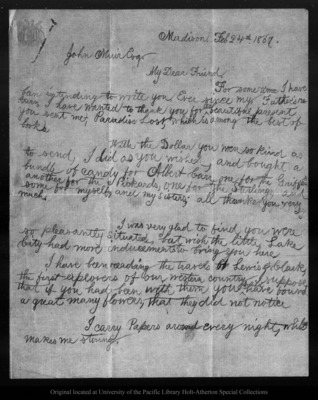 Madison, Feb 24th 1869.
John Muir Esqr
My Dear Friend,
For some time I have
been intending to write you Ever since my Father's
I have wanted to thank you for beautiful present
you sent me; Paradise Lost, which is among the best of
books.
With the Dollar you were so kind as
to send, I did as you wished and bought a
bundle of candy for Albert one for the
another for the one for the
some for myself and my sisters all thanked you very
much.
I was very glad to find you were
so pleasantly situated, but wish the little Lake
City had more inducements to bring you here
I have been reading the travels of Lewis & Clark,
the first explorers of our western country, I suppose
that if you had been with them you'd have found
a great many flowers, that they did not notice
I carry Papers around every night, which
makes me strong.
Original located at University of the Pacific Library Holt-Atherton Special Collections